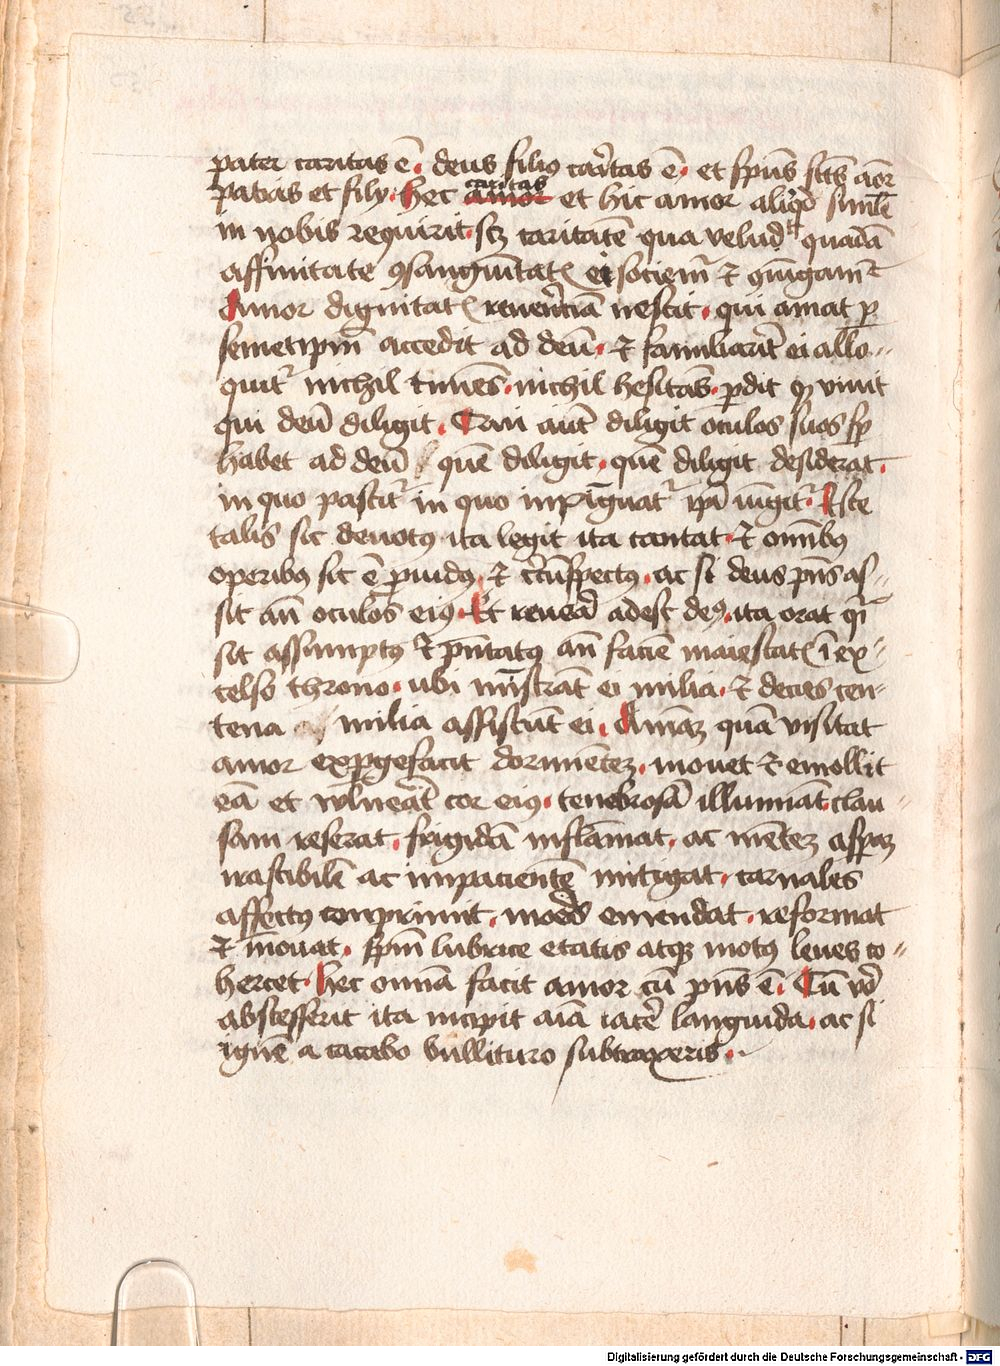 pater caritas ē. deus filiꝯ caͬitas ē. et spūs sctūs aōr
patͥs et filij. hec caritas et hic amor aliqͥd simile
in nobis requirit. scꝫ caritatē qua velud quadā
affinitate ꝯsanguītatꝭ ei sociemͬ ⁊ ꝯiūgamͬ
Amor dignitatꝭ reuerēciā nescit. qui amat ꝑ
semetipm̄ accedit ad deū. ⁊ familiaritͬ ei allo-
quitͬ nichil timēs. nichil hesitās. ꝑdit qꝫ viuit
qui deū diligit. Qui aūt diligit oculos suos sꝑ
habet ad deū quē diligit. quē diligit desiderat.
in quo pascitͬ in quo inpīguatͬ ip̄i iūgitͬ. Iste
talis sic deuotꝯ ita legit ita cantat ⁊ omībꝯ
operibꝯ sit ē ꝓuidꝯ ⁊ cͥcūspectꝯ. ac si deus pn̄s as-
sit an̄ oculos eiꝯ. Et reueͬa adest deꝯ. ita orat qͣi
sit assumptꝯ ⁊ pn̄tatꝯ an̄ faciē maiestatꝭ ī ex-
celso throno. ubi mīstrāt ei milia. ⁊ decies cen-
tena milia assistūt ei. Aīmaꝫ quā visitat
amor expͬgefacit dormiēteꝫ. mouet ⁊ emollit
eā et vulneͬat cor eiꝯ. tenebrosā illuminat. clau-
sam reserat. frigidā inflāmat. ac mēteꝫ aspͬaꝫ
irascibilē ac impacientē mitigat. carnales
affectꝯ comprimit. mores emendat. reformat
⁊ īnouat. spm̄ lubrice etatis atqꝫ motꝯ leues co-
hercet. hec omīa facit amor cū pn̄s ē. Cū vͦo
abscesserit ita incipit aīa iaceͬ languida. ac si
ignē a cacabo bullituro subtraxeris.
Digitalisierung gefördert durch die Deutsche Forschungsgemeinschaft - DFG